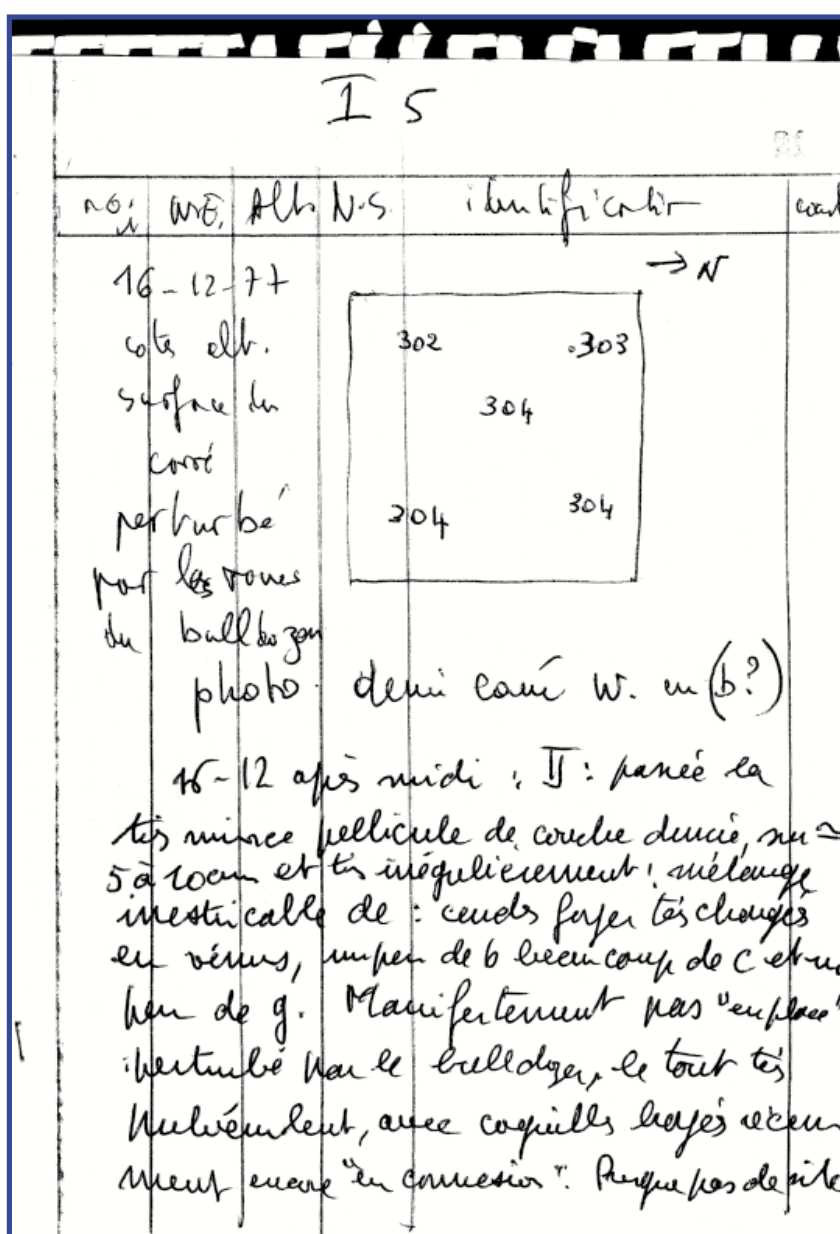 I 5
no. W.E. Alt. N.S. identification
→ N
16-12-77
cotes alt.
surface du
carré
perturbé
par les roues
du bulldozer
302 .303
304
304 304
photo. demi carré W. en (b?)
16-12 après midi : II : passée la
très mince pellicule de couche durcie, sur ≃
5 à 10cm et très irrégulièrement : mélange
inextricable de : cendres foyer très chargés
en vénus, un peu de b beaucoup de c et un
peu de g. Manifestement pas "en place"
perturbé par le bulldozer, le tout très
pulvérulent, avec coquilles broyés récem
ment encore "en connexion". Presque pas de sile